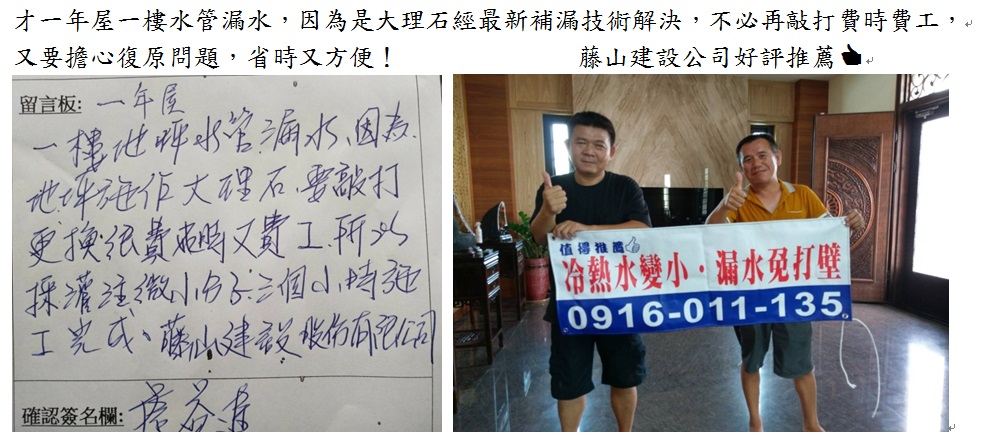 才一年屋一樓水管漏水，因為是大理石經最新補漏技術解決，不必再敲打費時費工，
又要擔心復原問題，省時又方便！ 藤山建設公司好評推薦
留言板: 一年屋
一樓地坪水管漏水、因為
地坪施作大理石、要敲打
更換很費時又費工、所以
採灌注微小分子、三個小時施
工完成、藤山建設股份有限公司
確認簽名欄:
值得推薦
冷熱水變小·漏水免打壁
0916-011-135